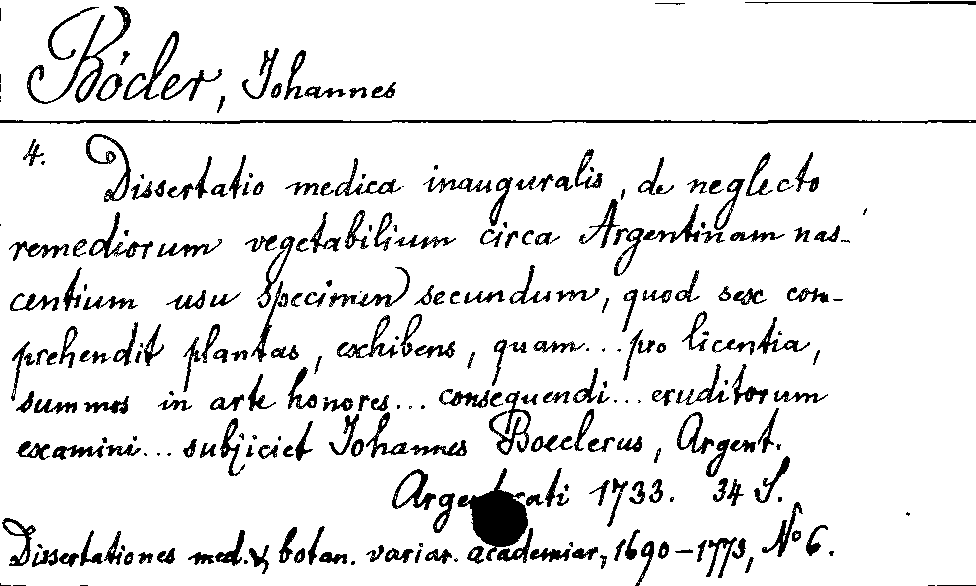 Böcler, Johannes
4. Dissertatio medica inauguralis, de neglecto
remediorum vegetabilium circa Argentinam nas-
centium usu specimen secundum, quod sesc com-
prehendit plantas, exhibens, quam... pro licentia,
summos in arte honores... consequendi... eruditorum
examini... subjiciet Johannes Boeclerus, Argent.
Argentorati 1733. 34 S.
Dissertationes med. & botan. variar. academiar, 1690-1773, No 6.